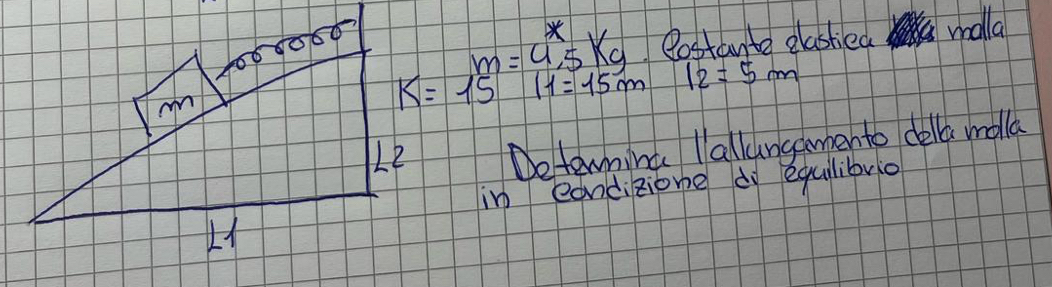 m = 4,5 Kg. Costante elastica molla
K = 15 l1 = 15m l2 = 5 m
m
L2
Determina l'allungamento della molla
in condizione di equilibrio
L1